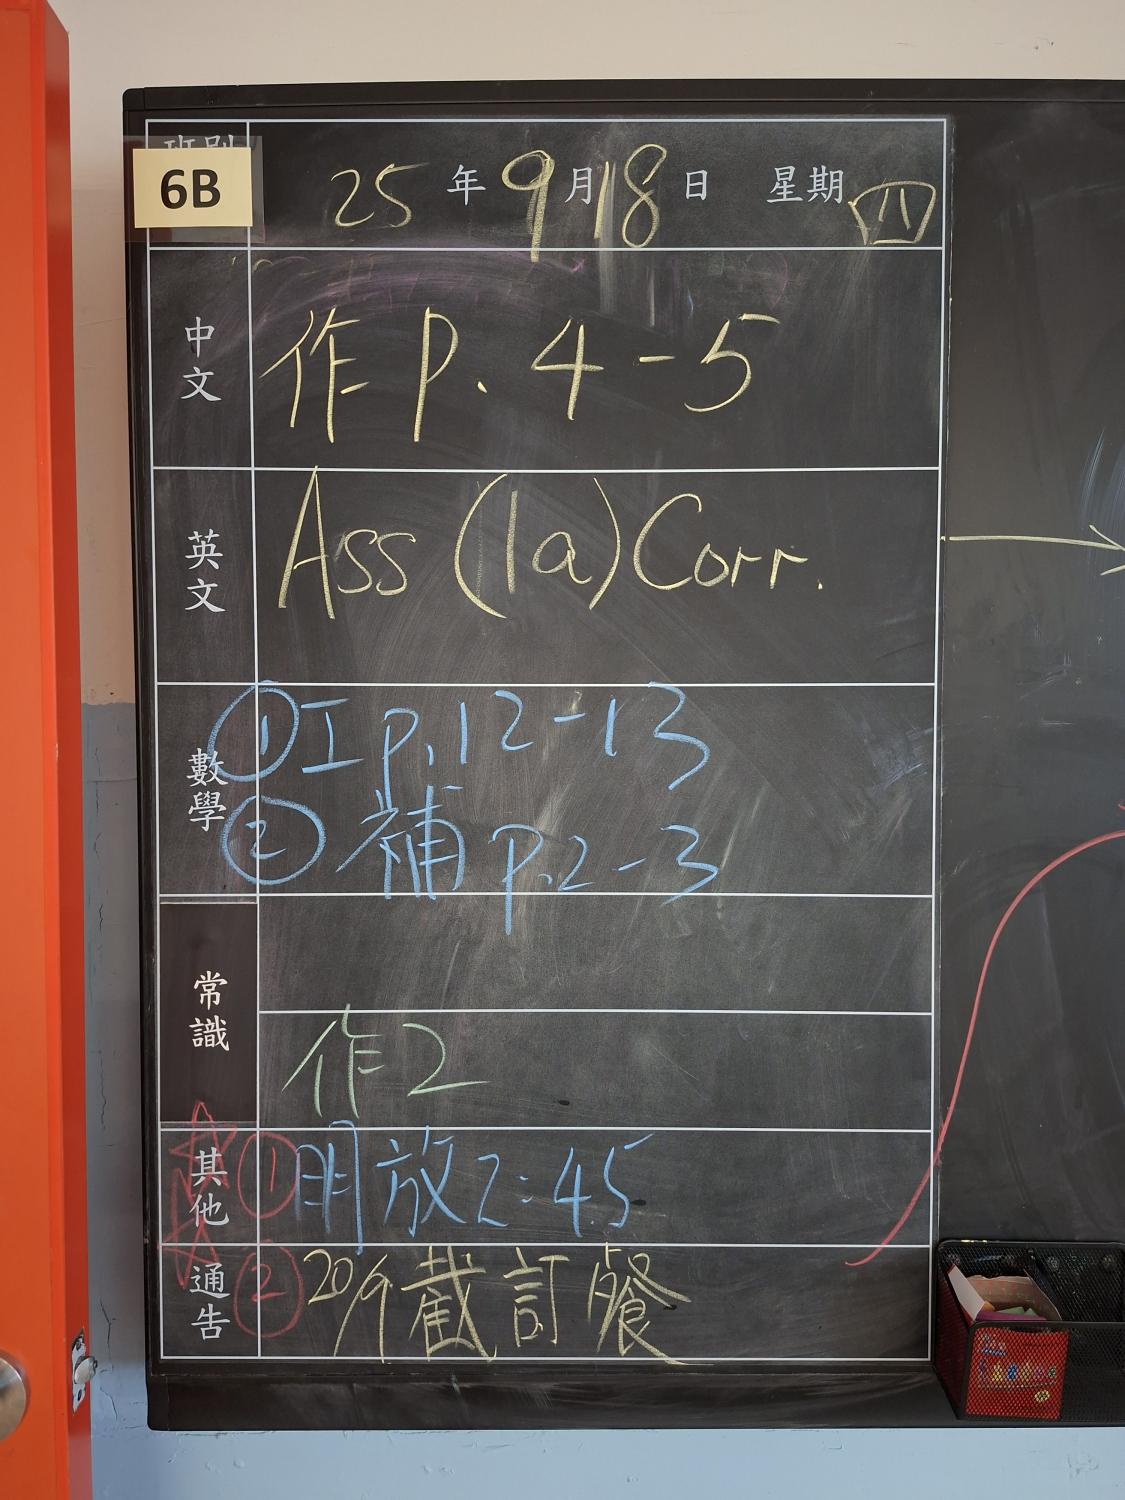 班別
6B
25年9月18日 星期四
中文
作 P. 4-5
英文
Ass (1a) Corr.
數學
① 工 p.12-13
② 補 p.2-3
常識
作2
其他
① 明放 2:45
通告
② 20/9 截訂餐